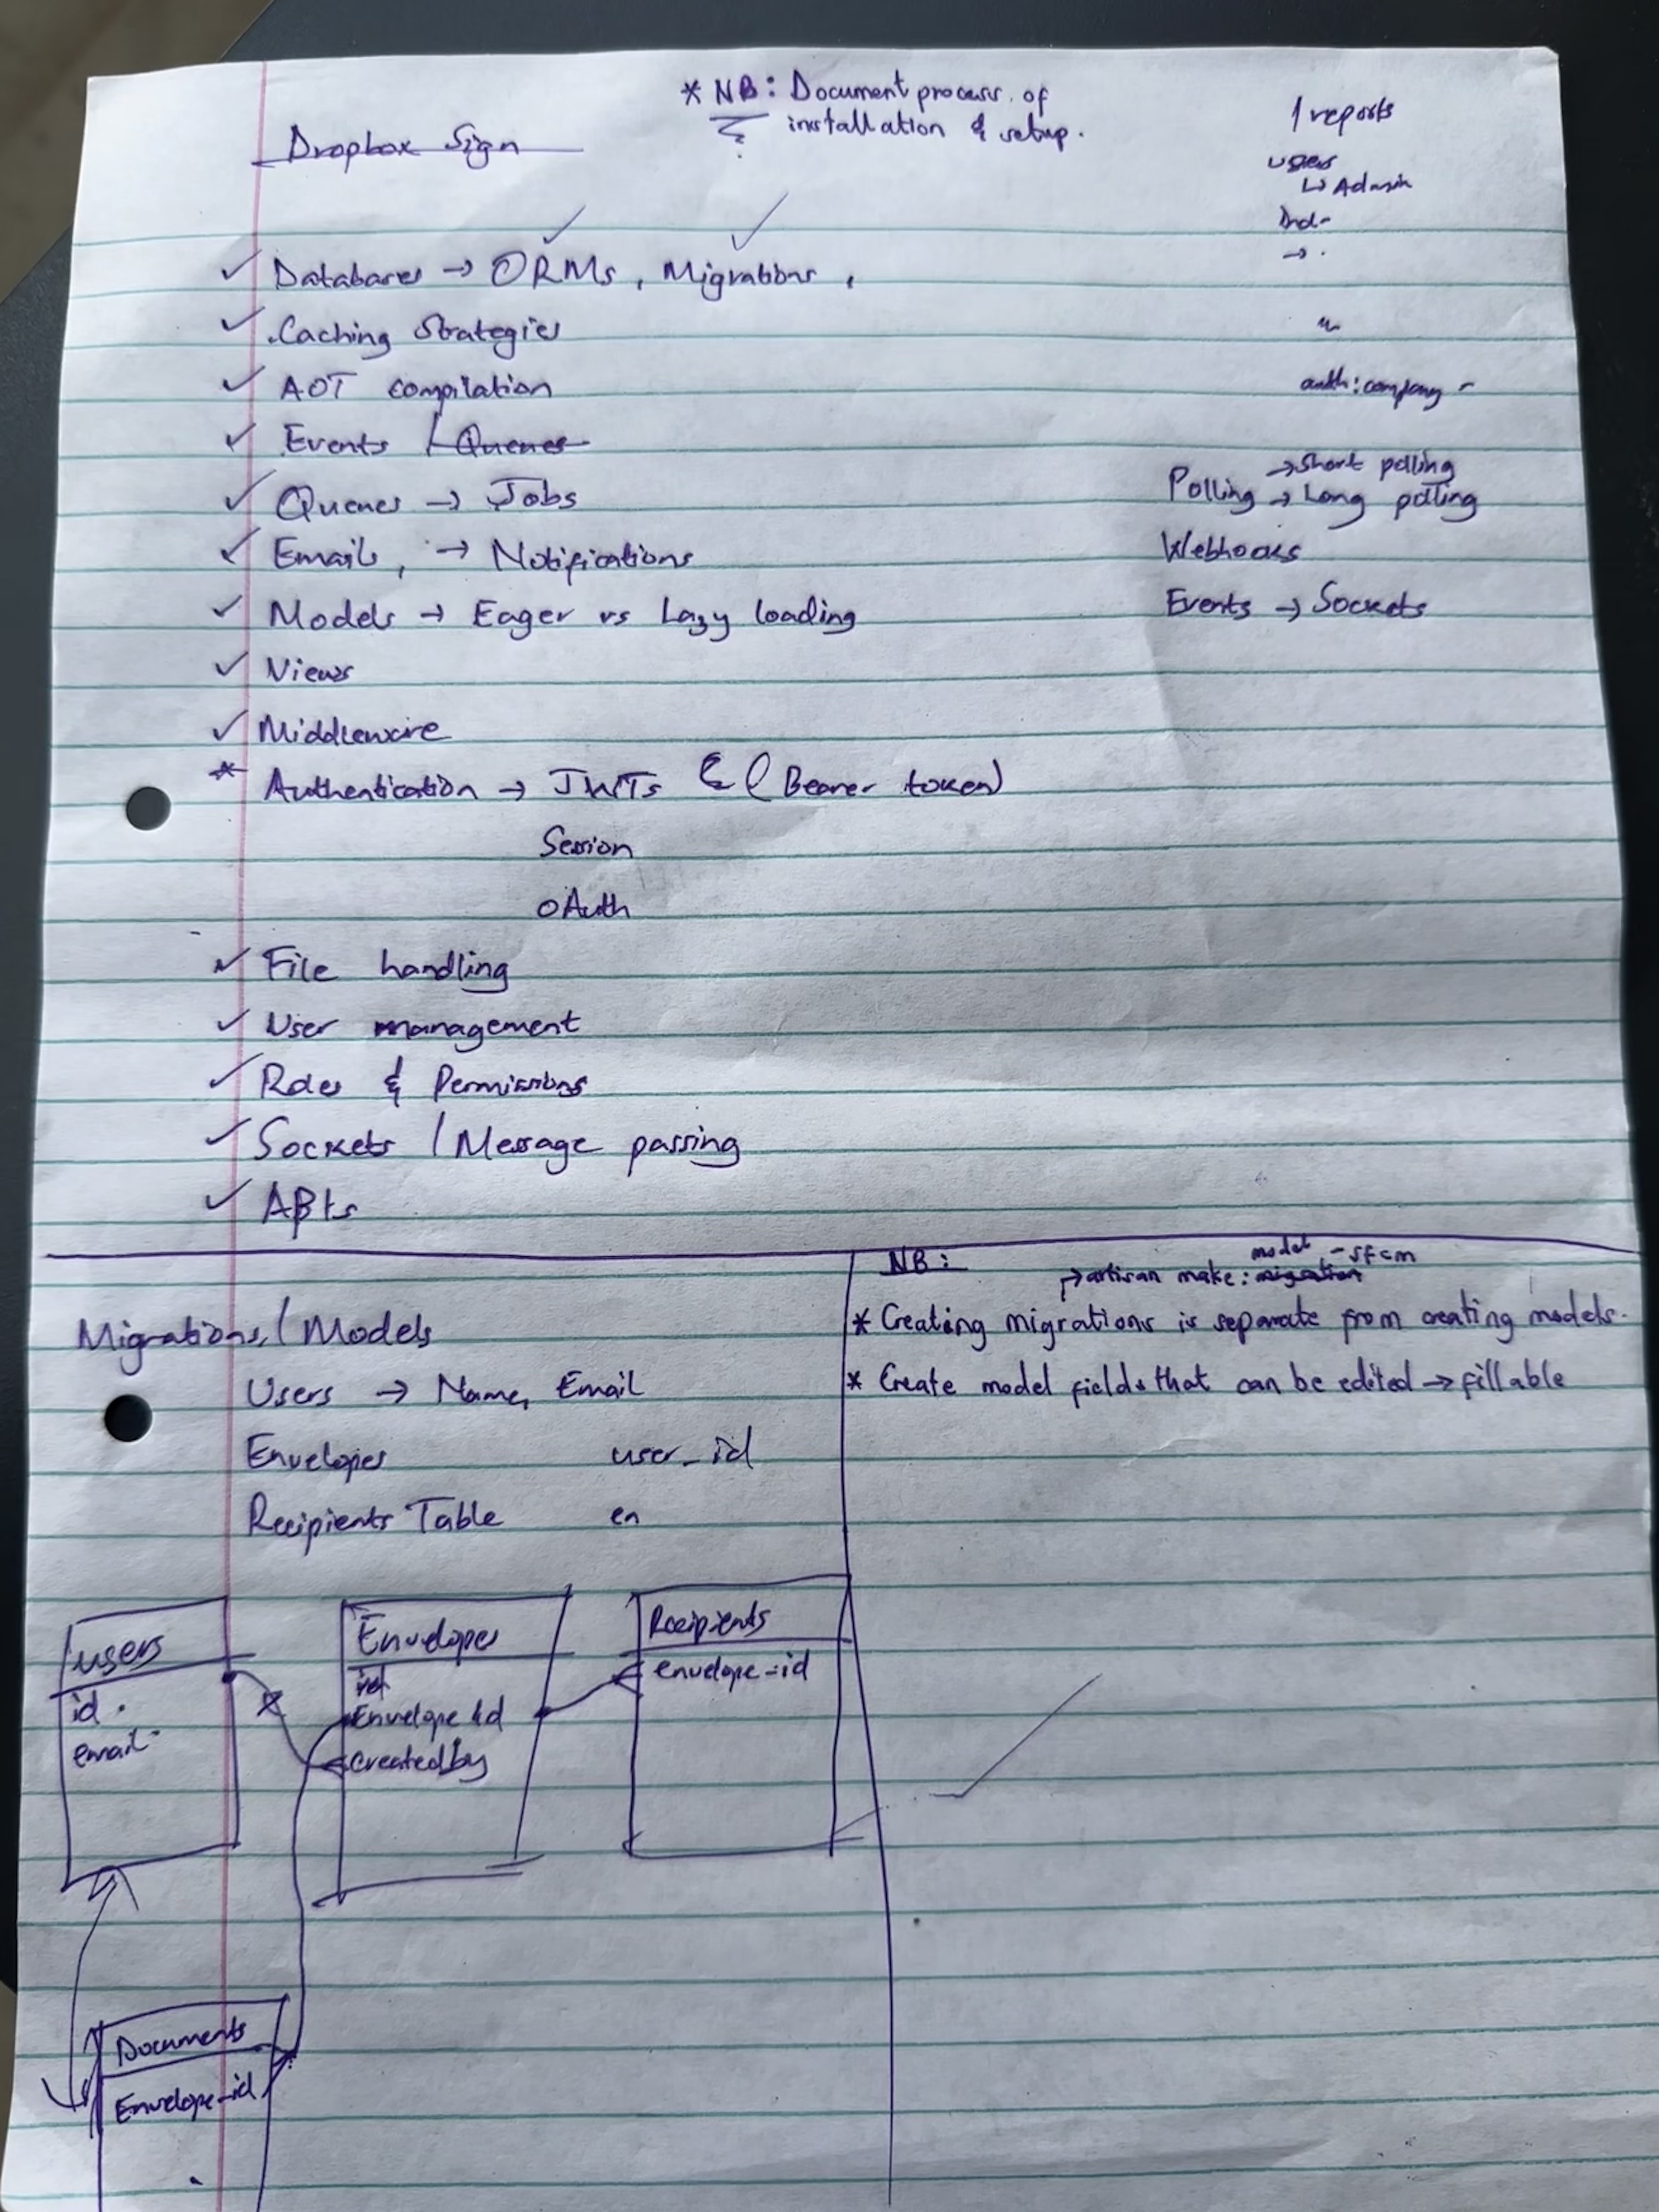 * NB: Document process of
installation & setup.
Dropbox Sign
/reports
users
↳ Admin
✓ Databases → ORMs ✓, Migrations ✓,
✓ Caching Strategies
✓ AOT compilation
auth:company
✓ Events / Queues
✓ Queues → Jobs
✓ Emails, → Notifications
✓ Models → Eager vs Lazy loading
✓ Views
✓ Middleware
* Authentication → JWTs (Bearer token)
Session
oAuth
✓ File handling
✓ User management
✓ Roles & Permissions
✓ Sockets / Message passing
✓ APIs
→ short polling
Polling → Long polling
Webhooks
Events → Sockets
Migrations / Models
Users → Name, Email
Envelopes user_id
Recipients Table en
NB:
model -sfcm
→ artisan make: migration
* Creating migrations is separate from creating models.
* Create model fields that can be edited → fillable
users
id
email
Envelopes
id
Envelope Id
Createdby
Recipients
envelope_id
Documents
Envelope_id